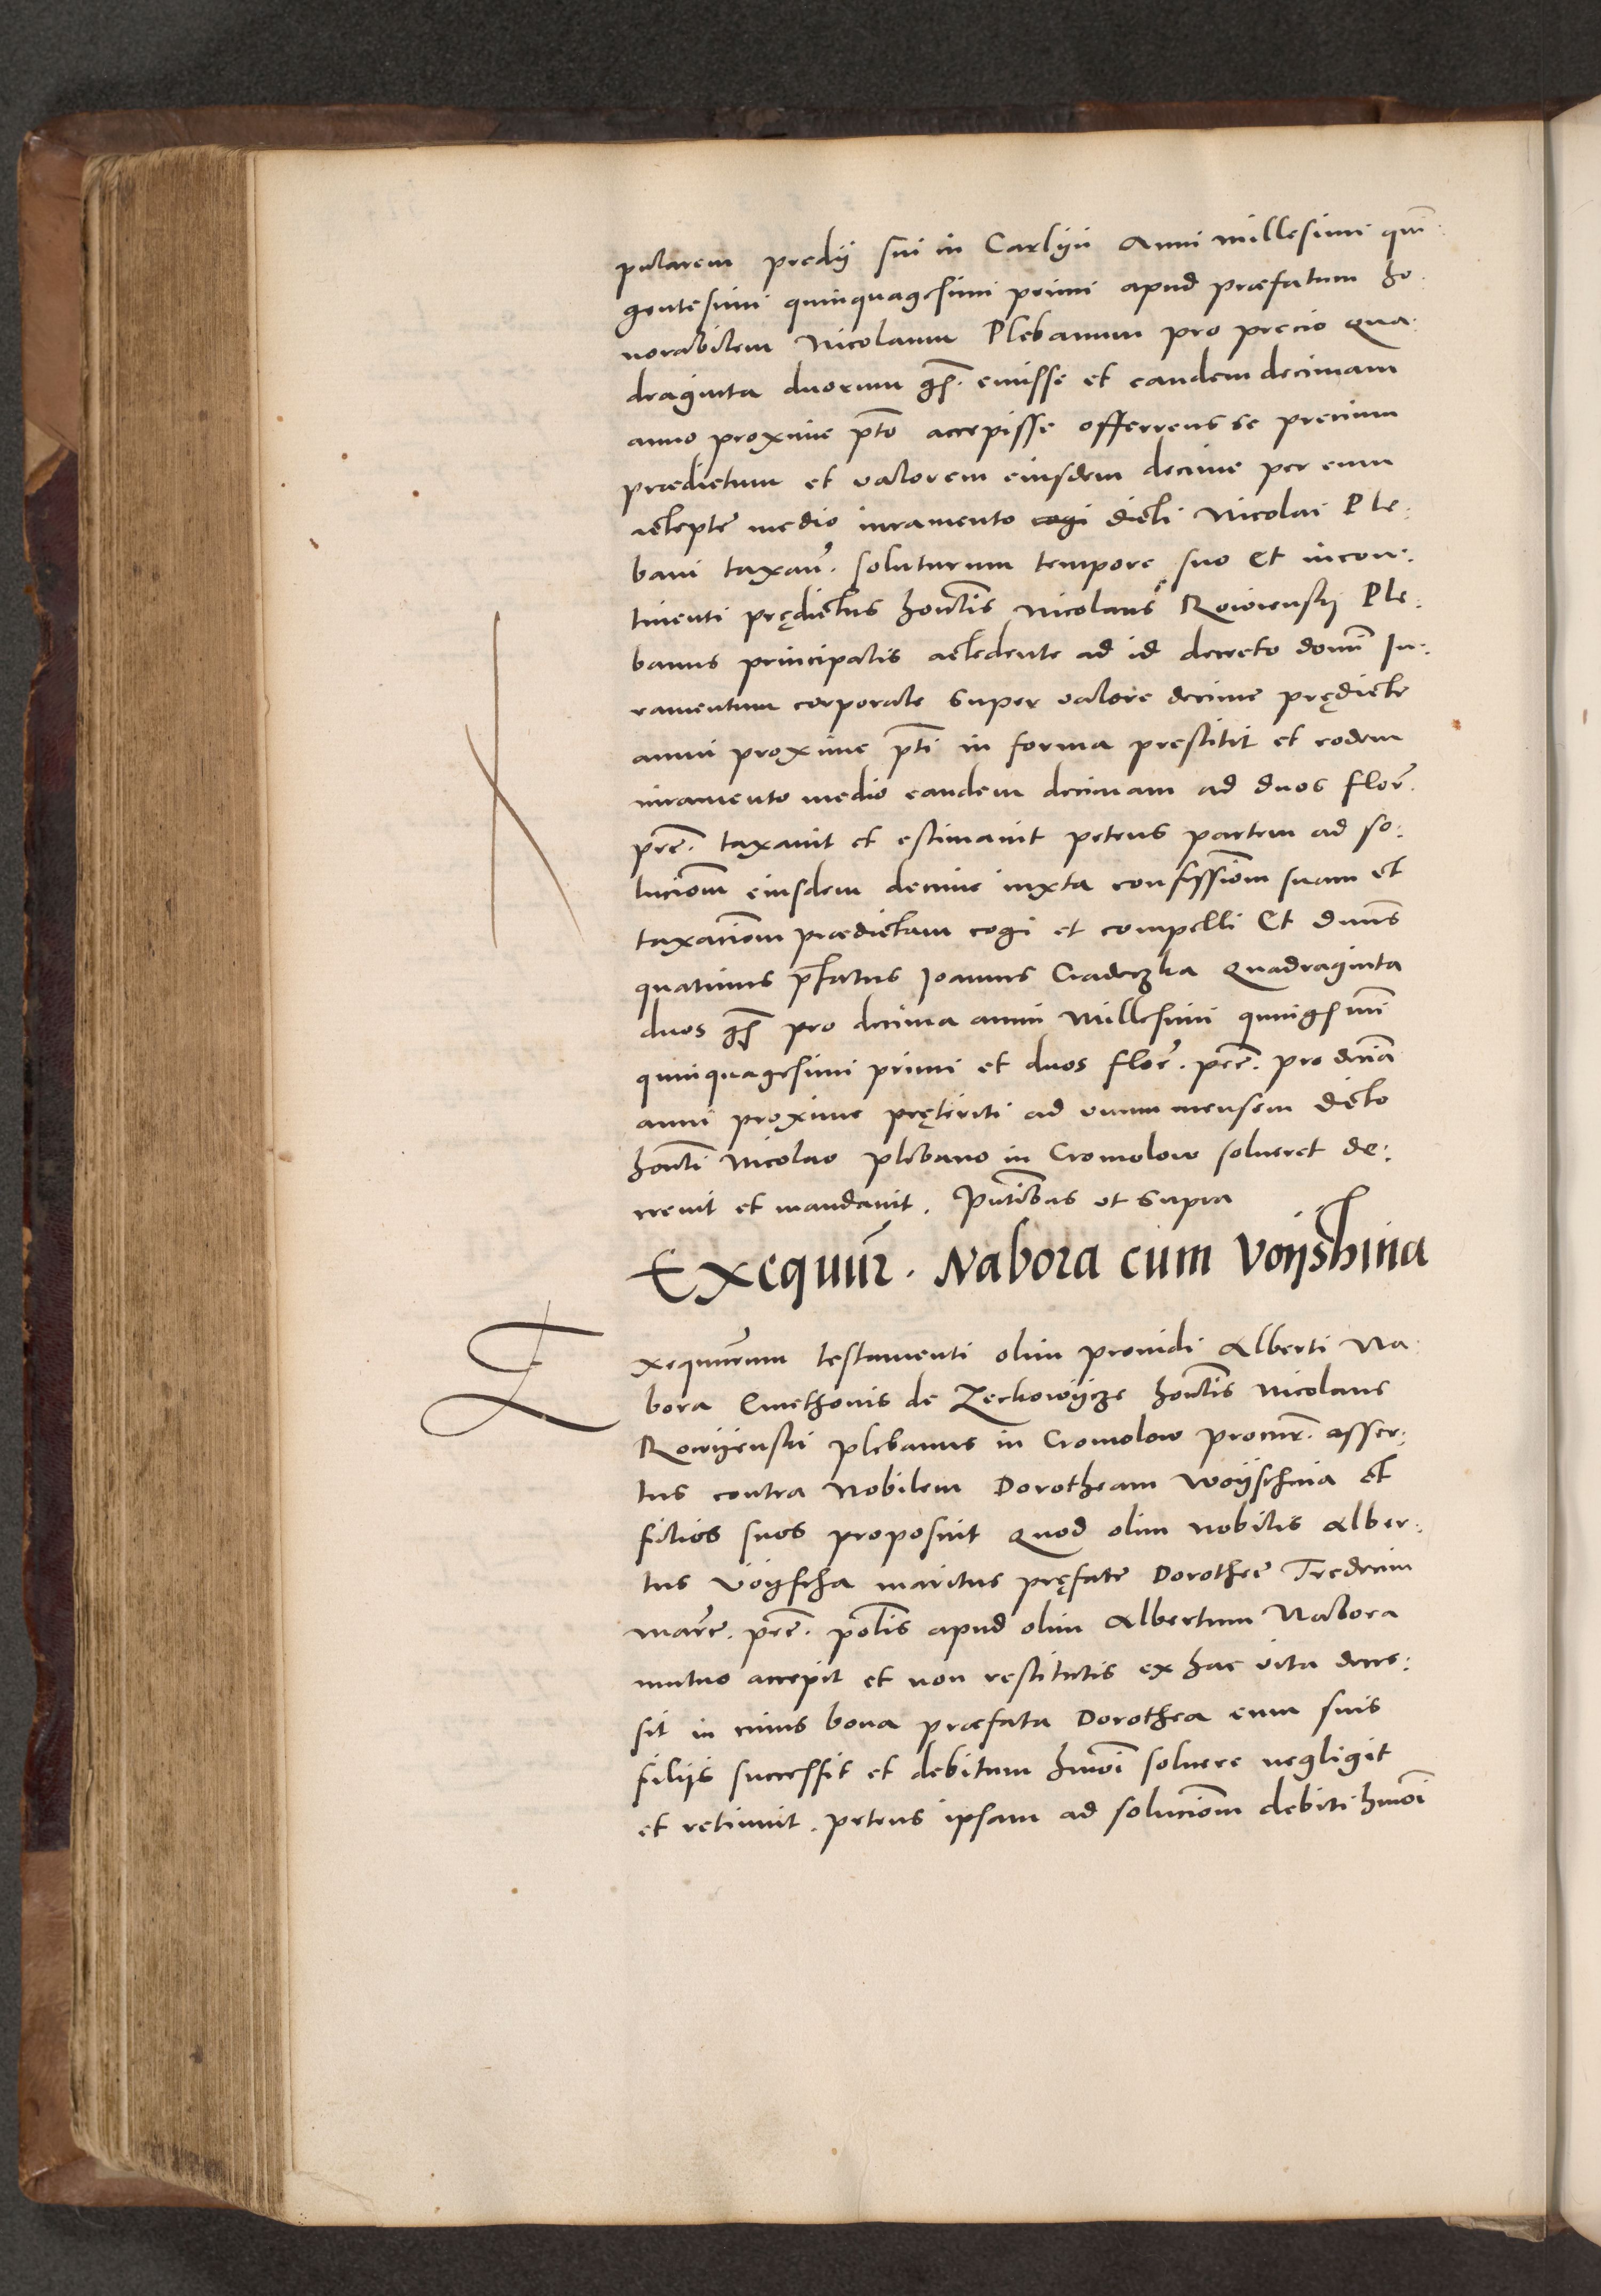 pularem predij sui in Carlijn Anni millesimi quin:
gentesimi quinquagesimi primi apud præfatum ho:
norabilem Nicolaum Plebanum pro precio Qua:
draginta duorum gs. emisse et eandem decimam
anno proxime pto accepisse offerrens se precium
prædictum et valorem eiusdem decime per eum
accepte medio iuramento cogi dicti Nicolai Ple:
bani taxan. soluturum tempore suo Et incon:
tinenti prędictus honlis Nicolaus Rowiensky Ple:
banus principalis accedente ad id decreto domi Iu:
ramentum corporale super valore decime prędicte
anni proxime pti in forma prestitit et eodem
iuramento medio eandem decimam ad duos flor.
pec. taxauit et estimauit petens partem ad so:
lucionem eiusdem decime iuxta confessionem suam et
taxacionem prædictam cogi et compelli Et dnus
quatinus pfatus Ioannes Cradeczka Quadraginta
duos gs pro decima anni Millesimi quingsimi
quinquagesimi primi et duos flor. pec. pro decima
anni proxime pręteriti ad unum mensem dicto
honli Nicolao plebano in Cromolow solueret de:
creuit et mandauit. Pntibus ut supra
Exequur. Nabora cum Voijschina
Exequurum testamenti olim prouidi Alberti Na:
bora Cmethonis de Zerkowijcze honlis Nicolaus
Rowijenski plebanus in Cromolow procur. asser:
tus contra Nobilem Dorotheam Woijschnia et
filios suos proposuit Quod olim nobilis Alber:
tus Voijscha maritus pręfate Dorothee Tredecim
marc. pec. polis apud olim Albertum Nabora
mutuo accepit et non restitutis ex hac vita deces:
sit in cuius bona præfata Dorothea cum suis
filijs successit et debitum hmoi soluere negligit
et retinuit. petens ipsam ad solucionem debiti hmoi